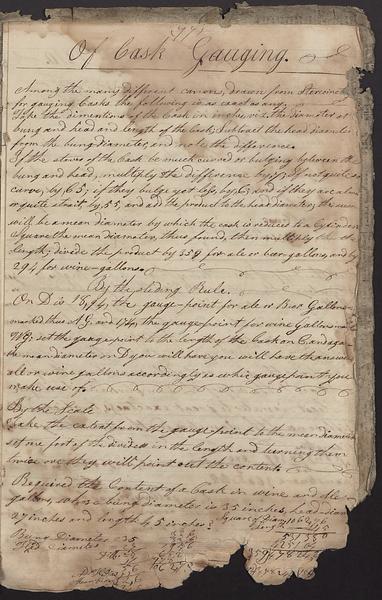 Of Cask Gauging.
Among the many different canons, drawn from Stereometry
for gauging Casks the following is as exact as any.
Take the dimentions of the Cask in inches, viz. the diameter at
bung and head and length of the Cask; Subtract the head diameter
from the bung diameter, and note the difference.
If the staves of the Cask be much curved or bulging between the
bung and head, multiply the difference by ,7; if not quite so
curve, by ,65; if they bulge yet less, by ,6; and if they are almost
or quite strait, by ,55, and add the product to the head diameter; the sum
will be a mean diameter by which the cask is reduced to a Cylinder.
Square the mean diameter, thus found, then multiply by the
length; divide the product by 359 for ale or beer gallons, and by
294 for wine-gallons.
By the sliding Rule.
On D is 18,94, the gauge-point for ale or Beer Gallons
marked thus AG, and 17,14, the gauge-point for wine Gallons mark
WG; set the gauge-point to the length of the Cask on C and against
the mean diameter on D you will have you will have the answer
ale or wine gallons accordingly as which gauge point you
make use of.
By the Scale
Take the extent from the gauge-point to the mean diameter
set one foot of the dividers in the length and turning them
twice over they will point out the content.
Required the Content of a Cask in wine and ale
gallons, whose bung diameter is 35 inches, head-diam
27 inches and length 45 inches?
Square of Diam 1062,76
Bung Diameter 35
Head Diameter